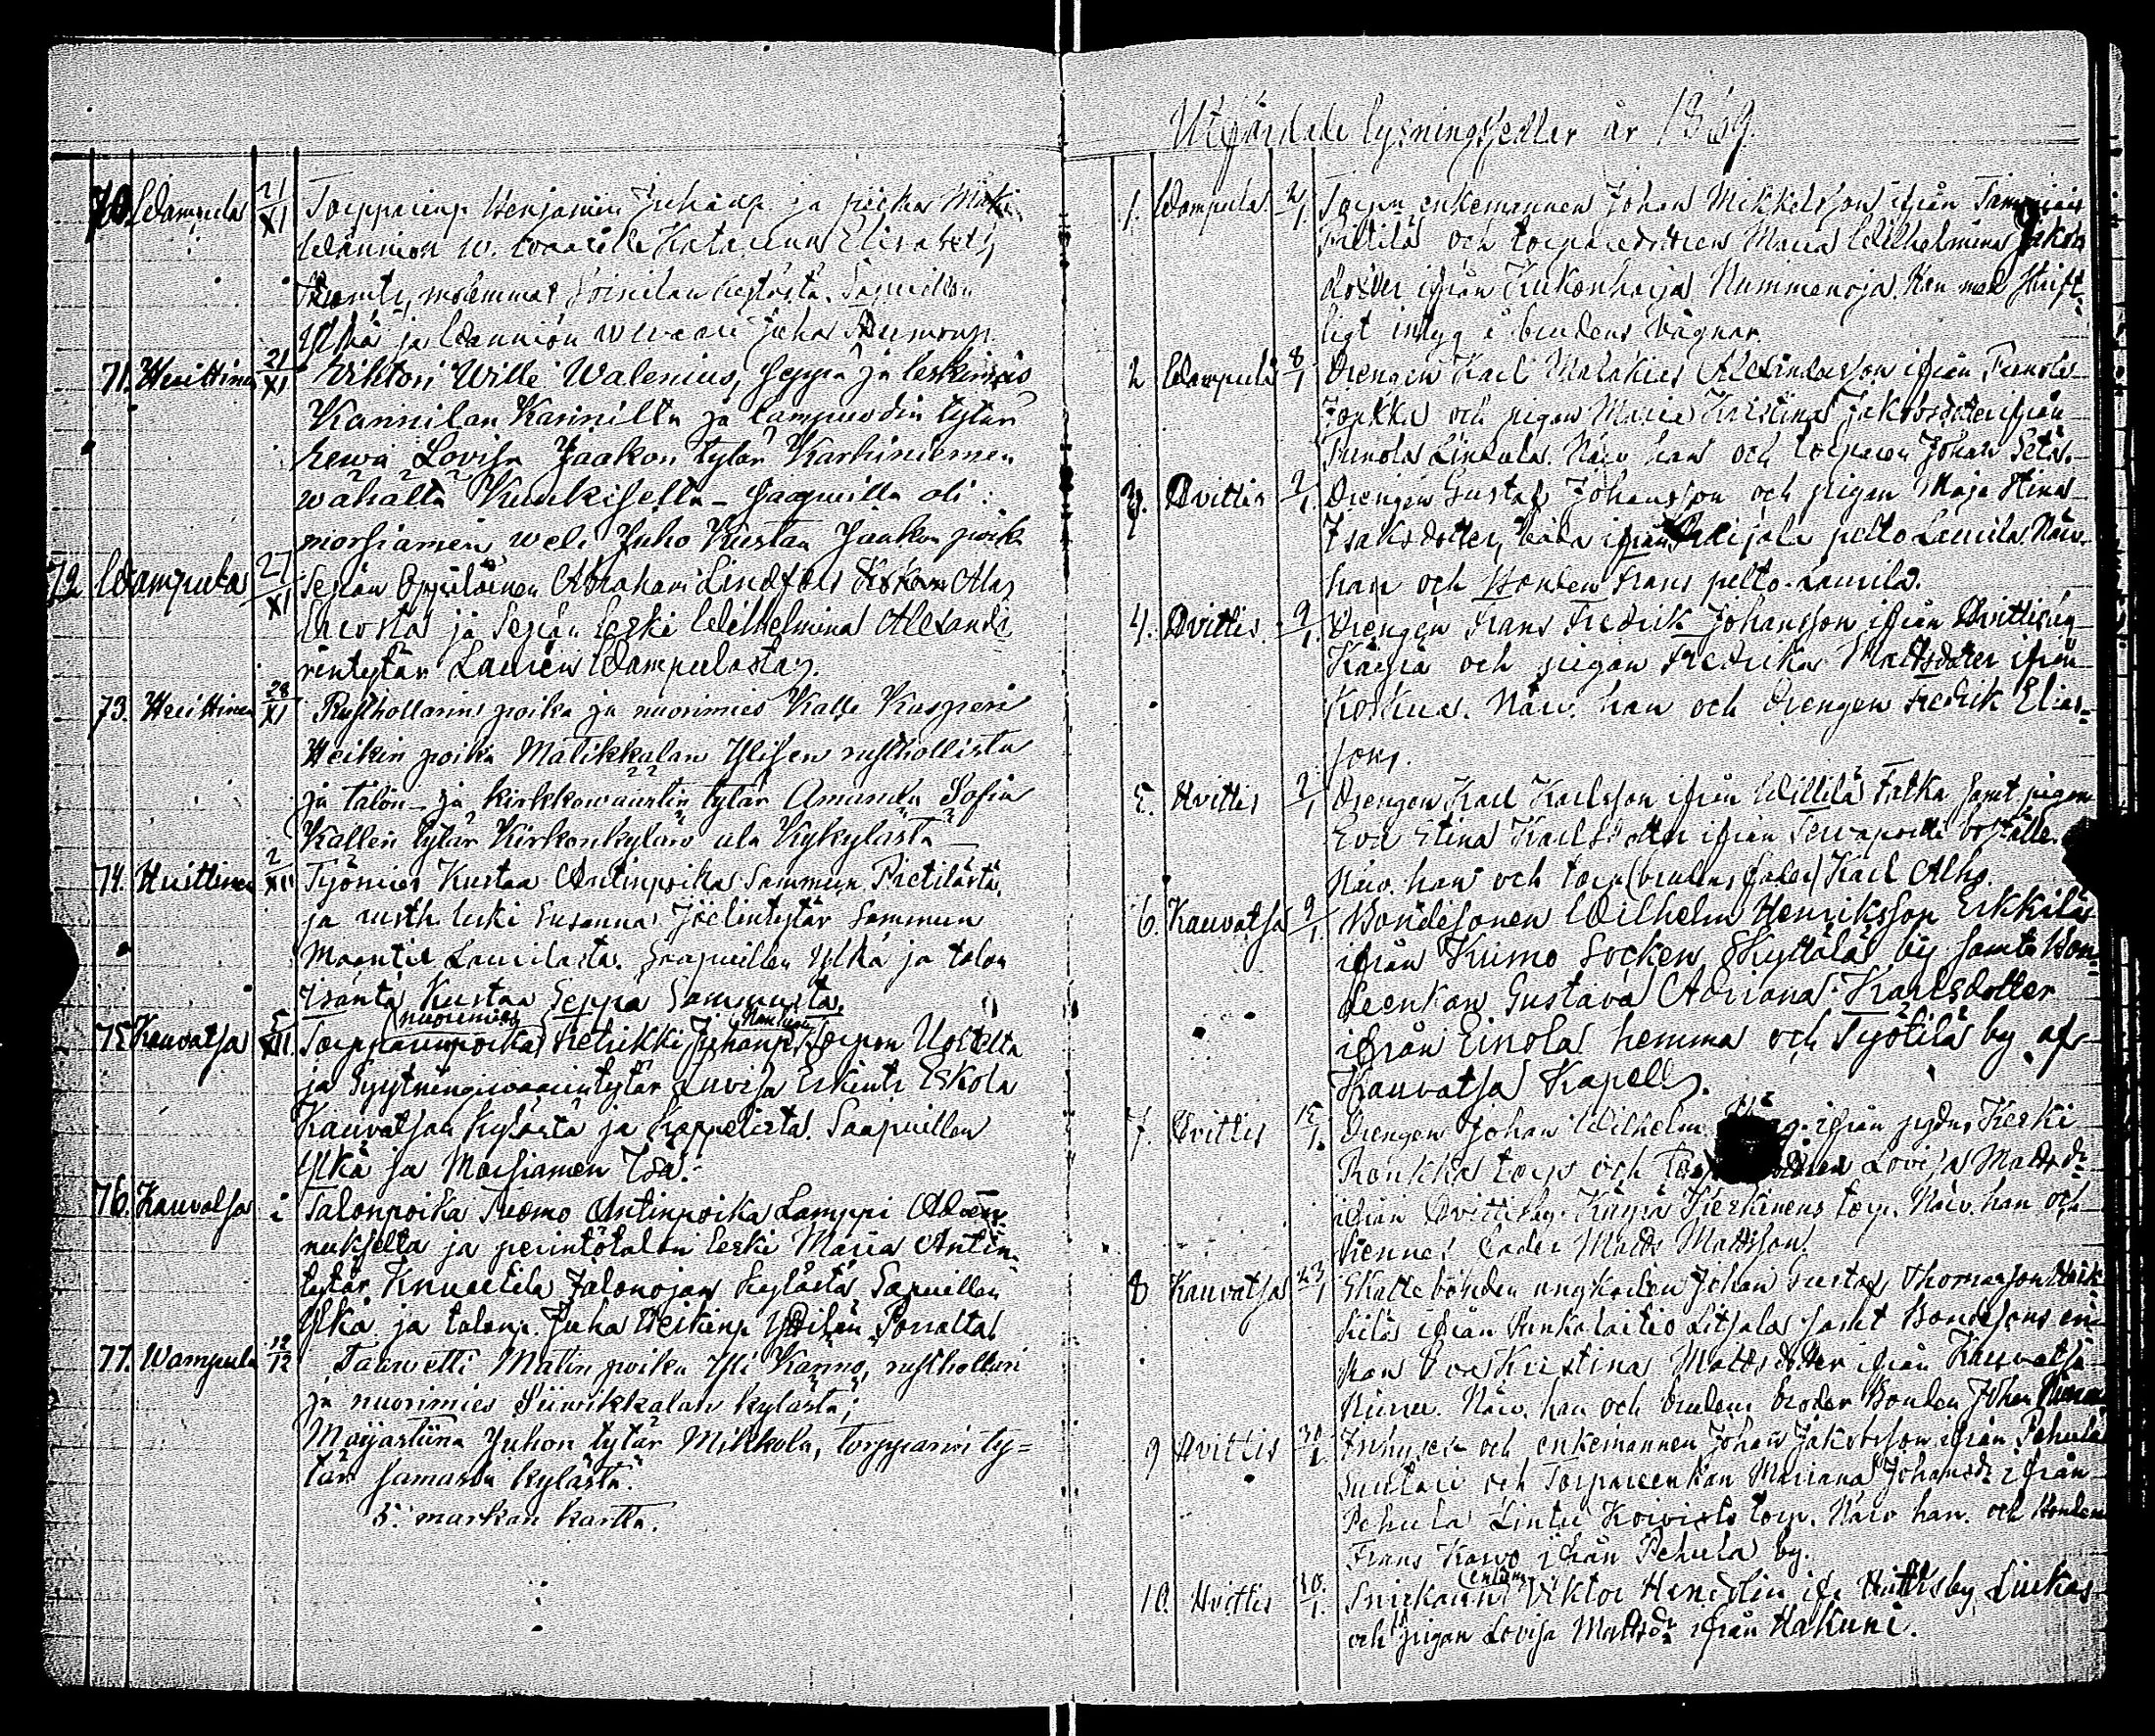 70. Wampula 21/XI Torpparinp. Benjamin Juhanp. ja piika
Wännion w. Katarina Elisabeth
molemmat Soinilan kylästä. Sapuillon
Ylkä ja Wännion Juha Tuomonp.
71. Huittinen 21/XI Viktori Wille Walenius, Seppä ja leskimies
Kannilan Kannilta ja lampuodin tytär
Eewa Lovisa Jaakon tytär Karhiniemen
wähältä Kunkiselta - Saapuilla oli:
morsiamen weli Juho Kustaa Jaakon poik
72 Wampula 27/XI Sepän Oppilainen Abraham Lindfors Ala
ja Sepän Leski Wilhelmina Alexandi
rintytär Laurén Wampulasta.
73. Huittinen 28/XI Rusthollarin poika ja nuorimies Kalle Kasperi
Heikin poika Matikkalan Ylisen rusthollista
ja talon- ja kirkkowäärtin tytär Amanda Sofia
Kallen tytär Kirkonkylän ala Kykylästä -
74. Huittinen 2/XII Työmies Kustaa Antinpoika Sammun Pietilästä
ja rusth. leski Susanna Joelintytär Sammun
Maantie Laurilasta. Saapuillen Ylkä ja talon
Isäntä Kustaa Seppä Sammusta.
75. Kauvatsa 5/XII. Torpparinpoika (nuorimies) Fetrikki Juhanp. Torpon Uotilta
ja Syytningiwaarintytär Lovisa Eskint. Eskola
Kauvatsan kylästä ja Kappelista. Saapuillen
Ylkä ja Morsiamen Isä.
76. Kauvatsa Talonpoika Tuomo Antinpoika Lamppi
nukselta ja perintötalon Leski Maria Antin-
tytär Knuutila Jalonojan kylästä. Sapuillen
Ylkä ja talonp. Juha Heikinp. Yttilän Porraltas
77. Wampula 12/12 Taawetti Matin poika Yli Känno, rusthollari
ja nuorimies Siiwikkalan kylästä;
Maijastiina Juhon tytär Mikkola, torpparin ty=
tär samasta kylästä.
5. markan kartta.
Utfärdade lysningssedlar år 1869.
1. Wampula 2/1 Torpu enkemannen Johan Mikkelsson ifrån
Piltilä och torparedottren Maria Wilhelmina Jakobs
dotter ifrån Kukonharja Nummenoja. Han med skrift-
ligt intyg å brudens vägnar.
2 Wampula 8/1 Drengen Karl Malakias Alexandersson ifrån Punola
Jonkka och pigan Maria Kristina Jakobsdotter ifrån
Punola Lindula. Närv. han och torparen Johan Setä.
3. Hvittis 2/1. Drengen Gustaf Johansson och pigan Maja Stina
Isaksdotter, båda ifrån Raijala pelto Laurila. Närv.
han och Bonden Frans pelto-Laurila.
4. Hvittis. 9/1. Drengen Frans Fredrik Johansson ifrån Hvittisby
Käyrä och pigan Fredrika Mattsdotter ifrån
Koskua. Närv. han och drengen Fredrik Elias-
son.
5. Hvittis 9/1 Drengen Karl Karlsson ifrån Willilä Falka samt pigan
Eva Stina Karlsdotter ifrån boställe.
Närv. han och torp. (brudens fader) Karl Alho.
6. Kauvatsa 9/1. Bondesonen Wilhelm Henriksson Erkkilä
ifrån Kumo Socken Skyttälä by samt Bon-
deenkan Gustava Adriana Karlsdotter
ifrån Einola hemma och Syötilä by af
Kauvatsa Kapell.
7. Hvittis 15/1. Drengen Johan Wilhelm ifrån sydn. Keski
Ronkka torp och Lovisa Mattsdr
ifrån Hvittisby Käyrä Keskinens torp. Närv. han och
hennes fader Matts Mattsson.
8 Kauvatsa 23/1 Skattebonden ungkarlen Johan Gustaf Thomasson Heik
kilä ifrån Ankolaitio Litsala samt Bondesons en-
kan Eva Kristina Mattsdotter ifrån Kauvatsa
Närv. han och brudens broder Bonden Johan
9 Hvittis 30/1 Inhyses- och enkemannen Johan Jakobsson ifrån Pehula
Suutari och Torpareenkan Mariana Johansdr ifrån
Pehula Lintu Koivisto torp. Närv. han och Bonden
Frans Karvo ifrån Pehula by.
10. Hvittis 30/1. Snickaren (enkem.) Viktor Hendolin ifr. Huittisby Luikas
och pigan Lovisa Mattsdr ifrån Hakuni.